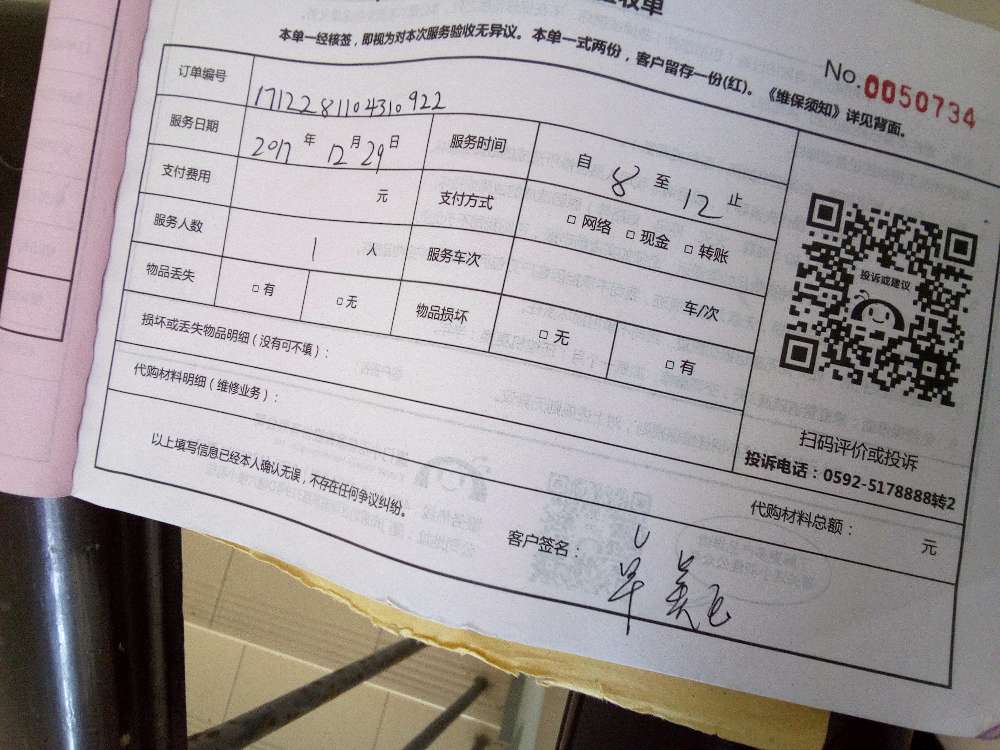 收单
本单一经核签，即视为对本次服务验收无异议。本单一式两份，客户留存一份(红)。《维保须知》详见背面。
No.0050734
订单编号 1712281104310922
服务日期 2017年12月29日 服务时间 自8至12止
支付费用 元 支付方式 □网络 □现金 □转账
服务人数 1人 服务车次 车/次
物品丢失 □有 □无 物品损坏 □无 □有
损坏或丢失物品明细（没有可不填）：
代购材料明细（维修业务）：
代购材料总额： 元
以上填写信息已经本人确认无误，不存在任何争议纠纷。
客户签名：
投诉或建议
扫码评价或投诉
投诉电话：0592-5178888转2